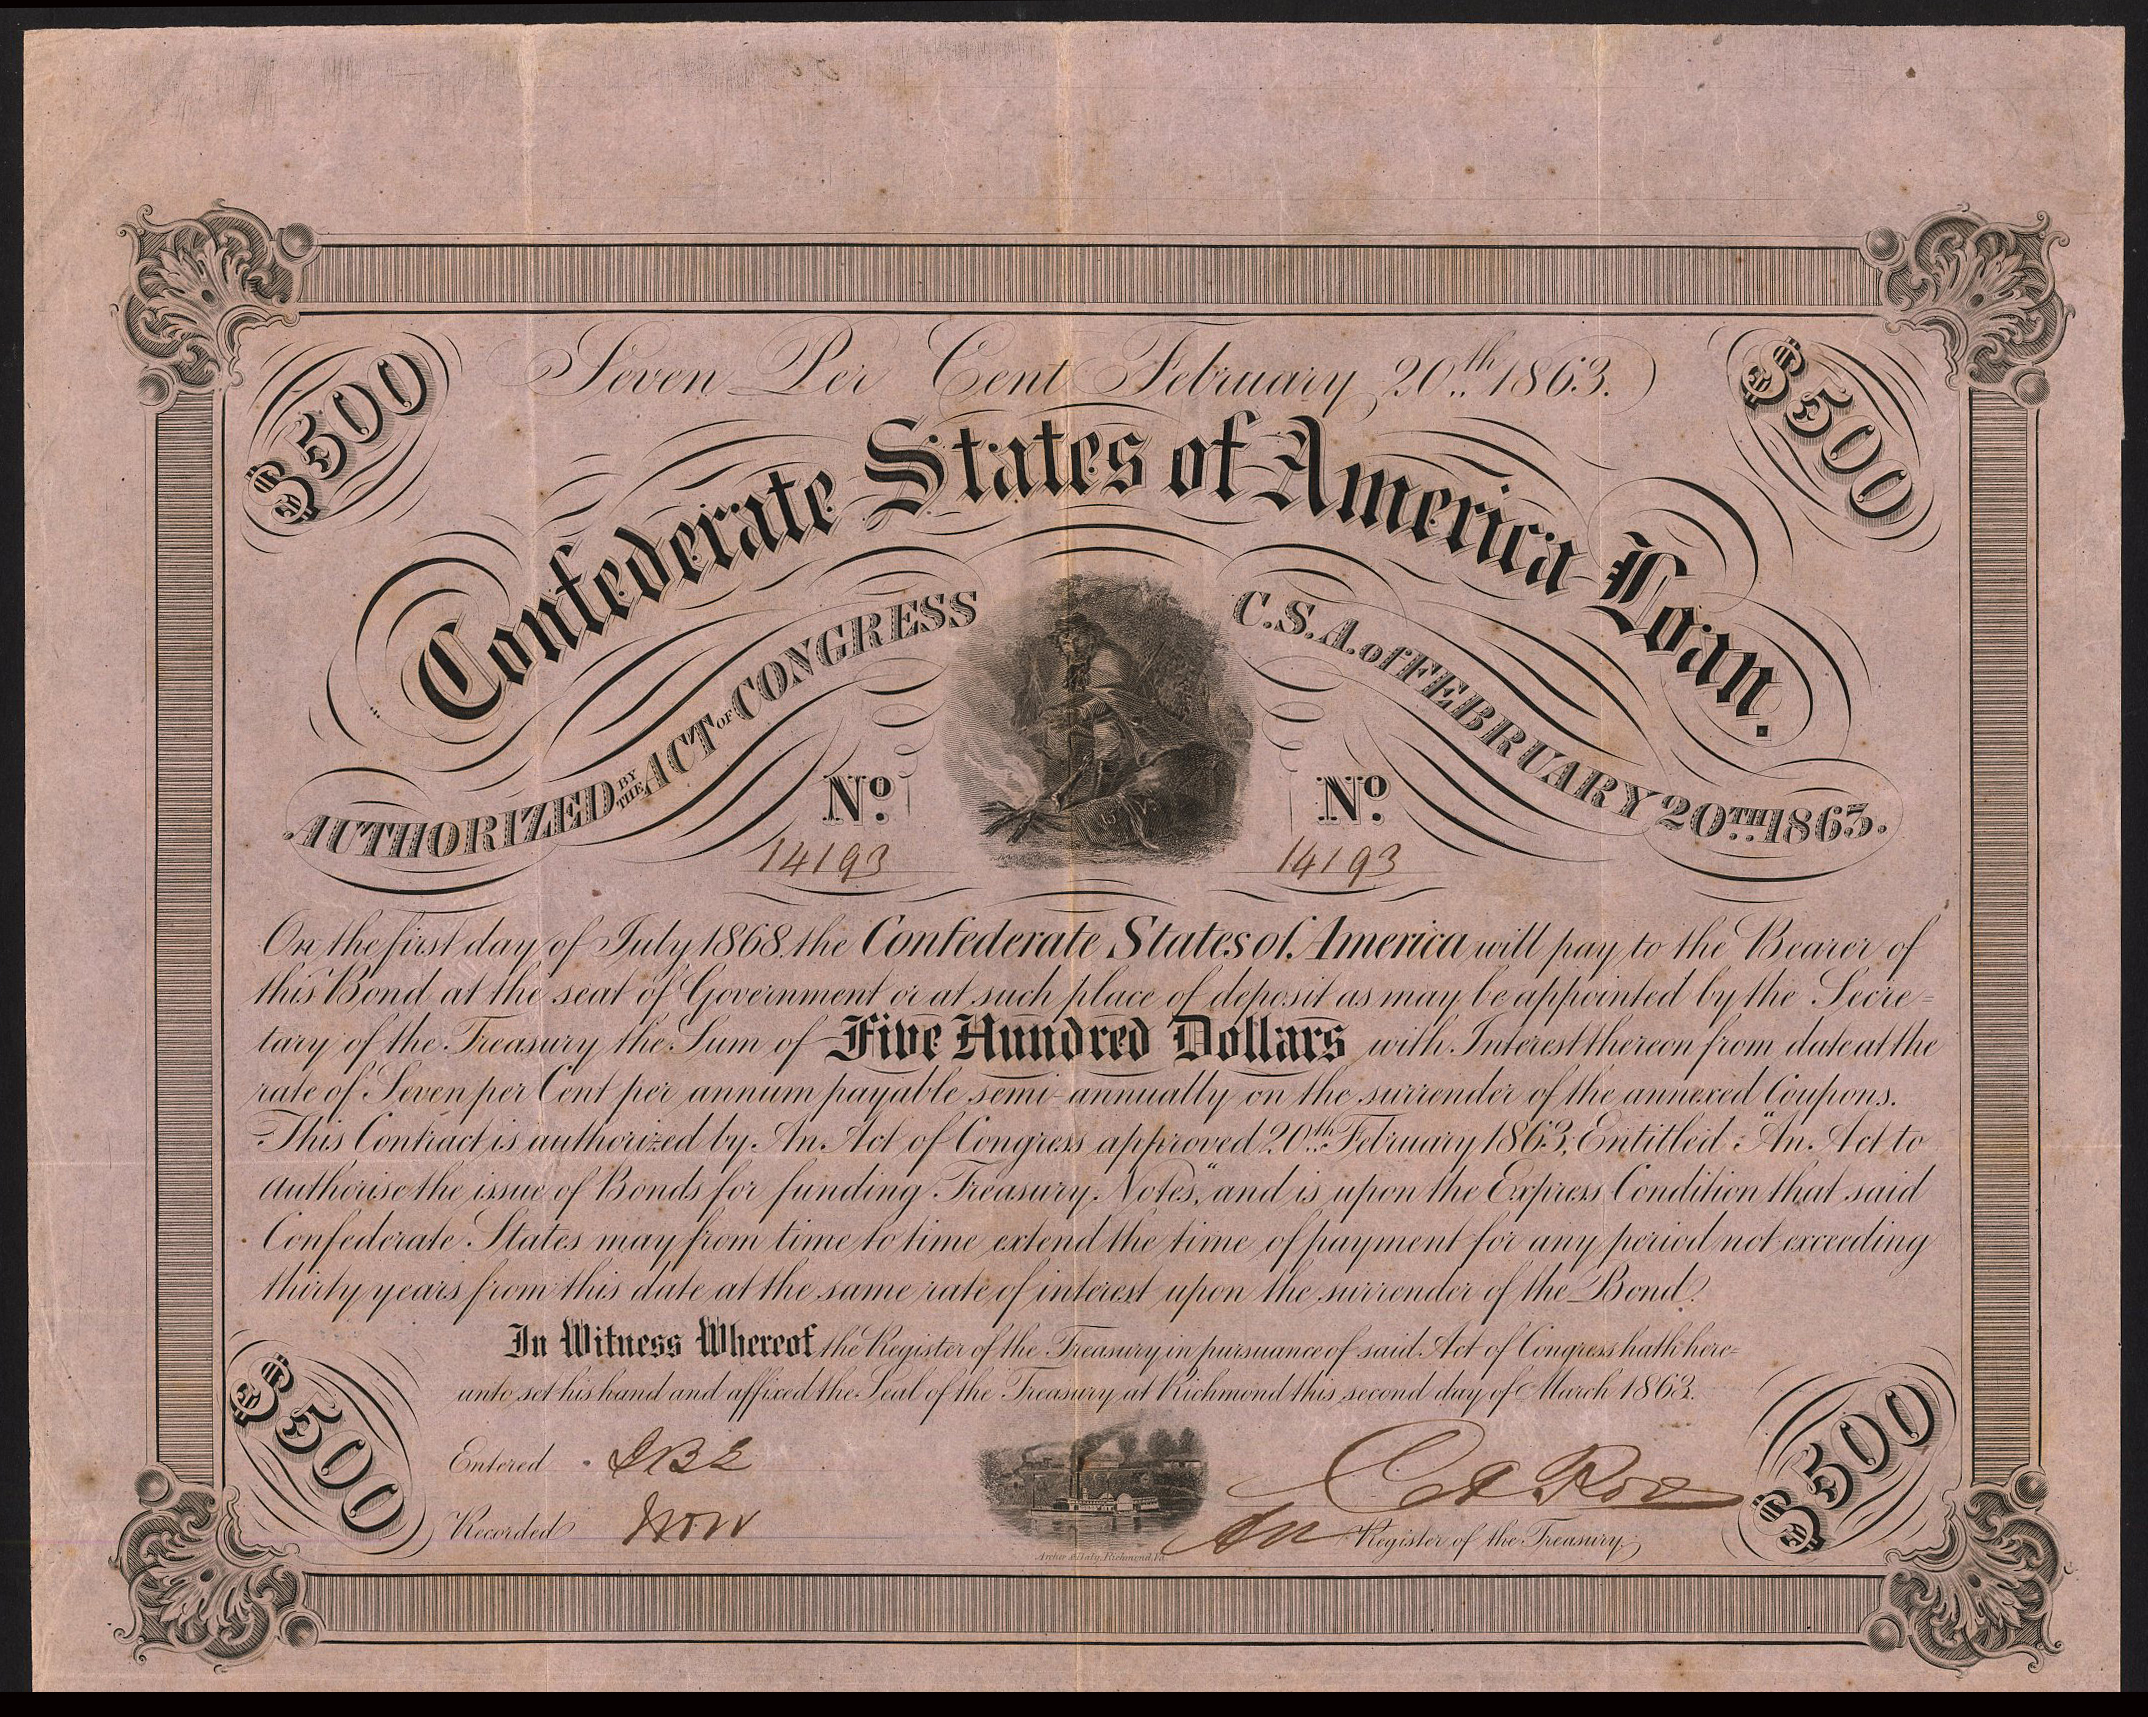 $500
Seven Per Cent February 20th 1863.
$500
Confederate States of America Loan.
AUTHORIZED BY THE ACT OF CONGRESS
C.S.A. of FEBRUARY 20TH 1863.
No.
No.
14193
14193
On the first day of July 1868, the Confederate States of America will pay to the Bearer of
this Bond at the seat of Government or at such place of deposit as may be appointed by the Secre=
tary of the Treasury, the Sum of Five Hundred Dollars with Interest thereon from date at the
rate of Seven per Cent per annum payable semi-annually on the surrender of the annexed Coupons.
This Contract is authorized by An Act of Congress approved 20th February 1863, Entitled "An Act to
authorise the issue of Bonds for funding Treasury Notes," and is upon the Express Condition that said
Confederate States may from time to time extend the time of payment for any period not exceeding
thirty years from this date at the same rate of interest upon the surrender of the Bond.
In Witness Whereof the Register of the Treasury in pursuance of said Act of Congress hath here=
unto set his hand and affixed the Seal of the Treasury at Richmond this second day of March 1863.
$500
$500
Entered
C A Rose
Recorded
Register of the Treasury
Archer & Daly, Richmond, Va.